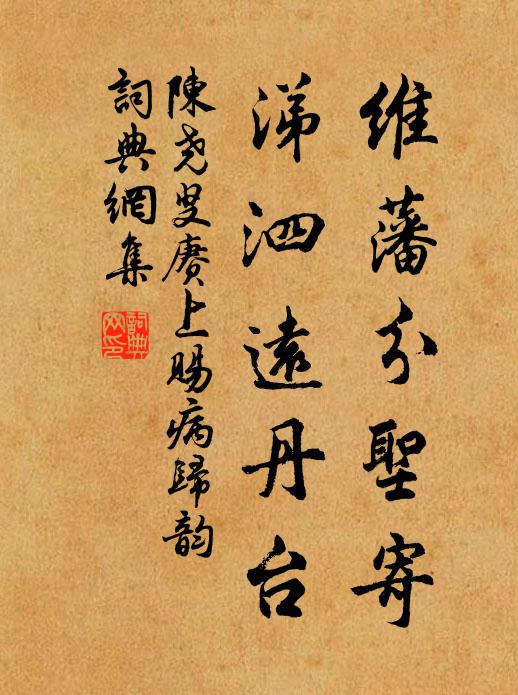 維藩分聖寄
涕泗遠丹台
陳堯叟賡上賜病歸韵
詞典網集
詞典
网印